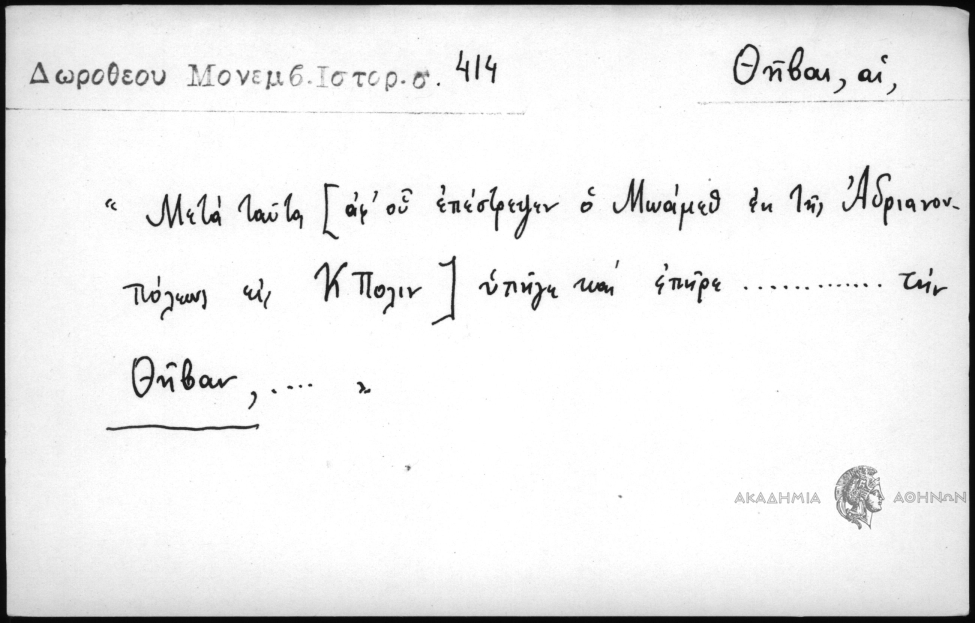 Δωροθεου Μονεμβ.Ιστορ.σ. 414
Θῆβαι, αἱ,
“ Μετὰ ταῦτα [ἀφ’ οὗ ἐπέστρεψεν ὁ Μωάμεθ ἐκ τῆς Ἀδριανου-
πόλεως εἰς ΚΠολιν] ὑπῆγε καὶ ἐπῆρε ............. τὴν
Θῆβαν, .... „
ΑΚΑΔΗΜΙΑ ΑΘΗΝΩΝ